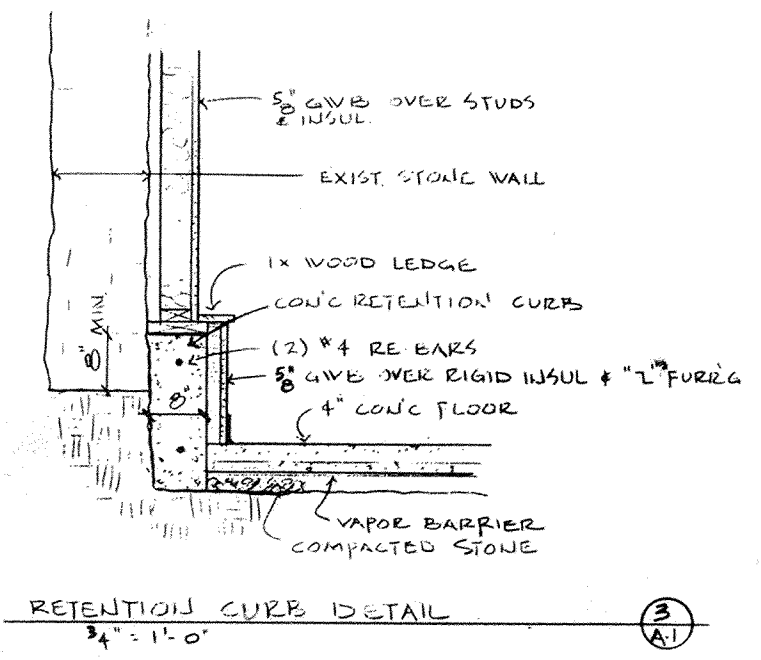 5/8" GWB OVER STUDS
& INSUL.
EXIST. STONE WALL
1x WOOD LEDGE
CON'C RETENTION CURB
(2) #4 RE-BARS
5/8" GWB OVER RIGID INSUL & "Z" FURR'G
4" CON'C FLOOR
8" MIN.
8"
VAPOR BARRIER
COMPACTED STONE
RETENTION CURB DETAIL
3/4" = 1'-0"
3
A-1